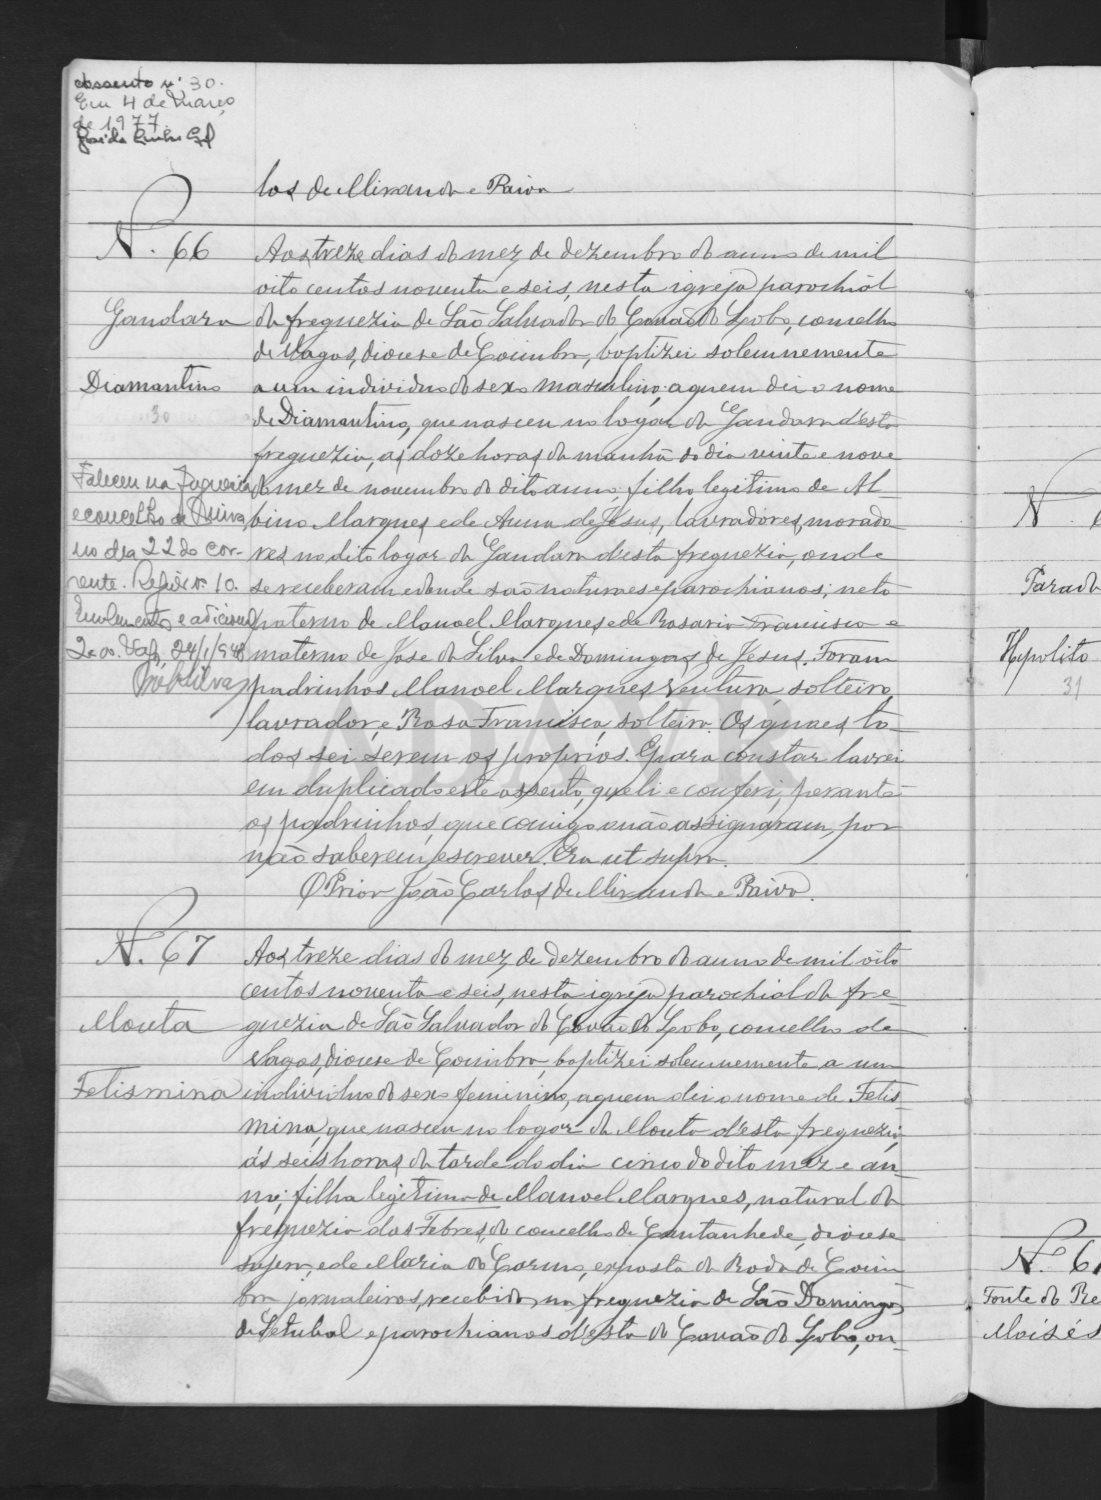 assento nº 30.
Em 4 de Março
de 1977.
los de Miranda e Paiva
N. 66
Gandara
Diamantino
30
Aos treze dias do mez de dezembro do anno de mil
oito centos noventa e seis, nesta igreja parochial
da freguezia de São Salvador do Covão do Lobo, concelho
de Vagos, diocese de Coimbra, baptizei solemnemente
a um individuo do sexo masculino, a quem dei o nome
de Diamantino, que nasceu no logar da Gandara d'esta
freguezia, as doze horas da manhã do dia vinte e nove
do mez de novembro do dito anno; filho legitimo de Al-
bino Marques e de Anna de Jesus, lavradores, morado-
res no dito logar da Gandara d'esta freguezia, onde
se receberam e donde são naturaes e parochianos; neto
paterno de Manoel Marques e de Rosaria Francisca e
materno de Jose da Silva e de Domingas de Jesus. Foram
padrinhos Manoel Marques Ventura, solteiro,
lavrador, e Rosa Francisca, solteira. Os quaes to-
dos sei serem os proprios. E para constar lavrei
em duplicado este assento, que li e conferi, perante
os padrinhos, que comigo não assignaram, por
não saberem escrever. Era ut supra.
O Prior João Carlos de Miranda e Paiva.
Faleceu na
e concelho de
no dia 22 do cor-
rente. nº 10.
24/1/948
Silva
ADAVR
N. 67
Mouta
Felismina
Aos treze dias do mez de dezembro do anno de mil oito
centos noventa e seis, nesta igreja parochial da fre-
guezia de São Salvador do Covão do Lobo, concelho de
Vagos, diocese de Coimbra, baptizei solemnemente a um
individuo do sexo feminino, a quem dei o nome de Felis-
mina, que nasceu no logar da Mouta d'esta freguezia,
ás seis horas da tarde do dia cinco do dito mez e an-
no; filha legitima de Manoel Marques, natural da
freguezia das Febres, do concelho de Cantanhede, diocese
supra, e de Maria do Carmo, exposta da Roda de Coim-
bra, jornaleiros, recebidos na freguezia de São Domingos
de Setubal e parochianos d'esta do Covão do Lobo, on-
N.
Parada
Hypolito
31
N. 6
Fonte do
Moisés